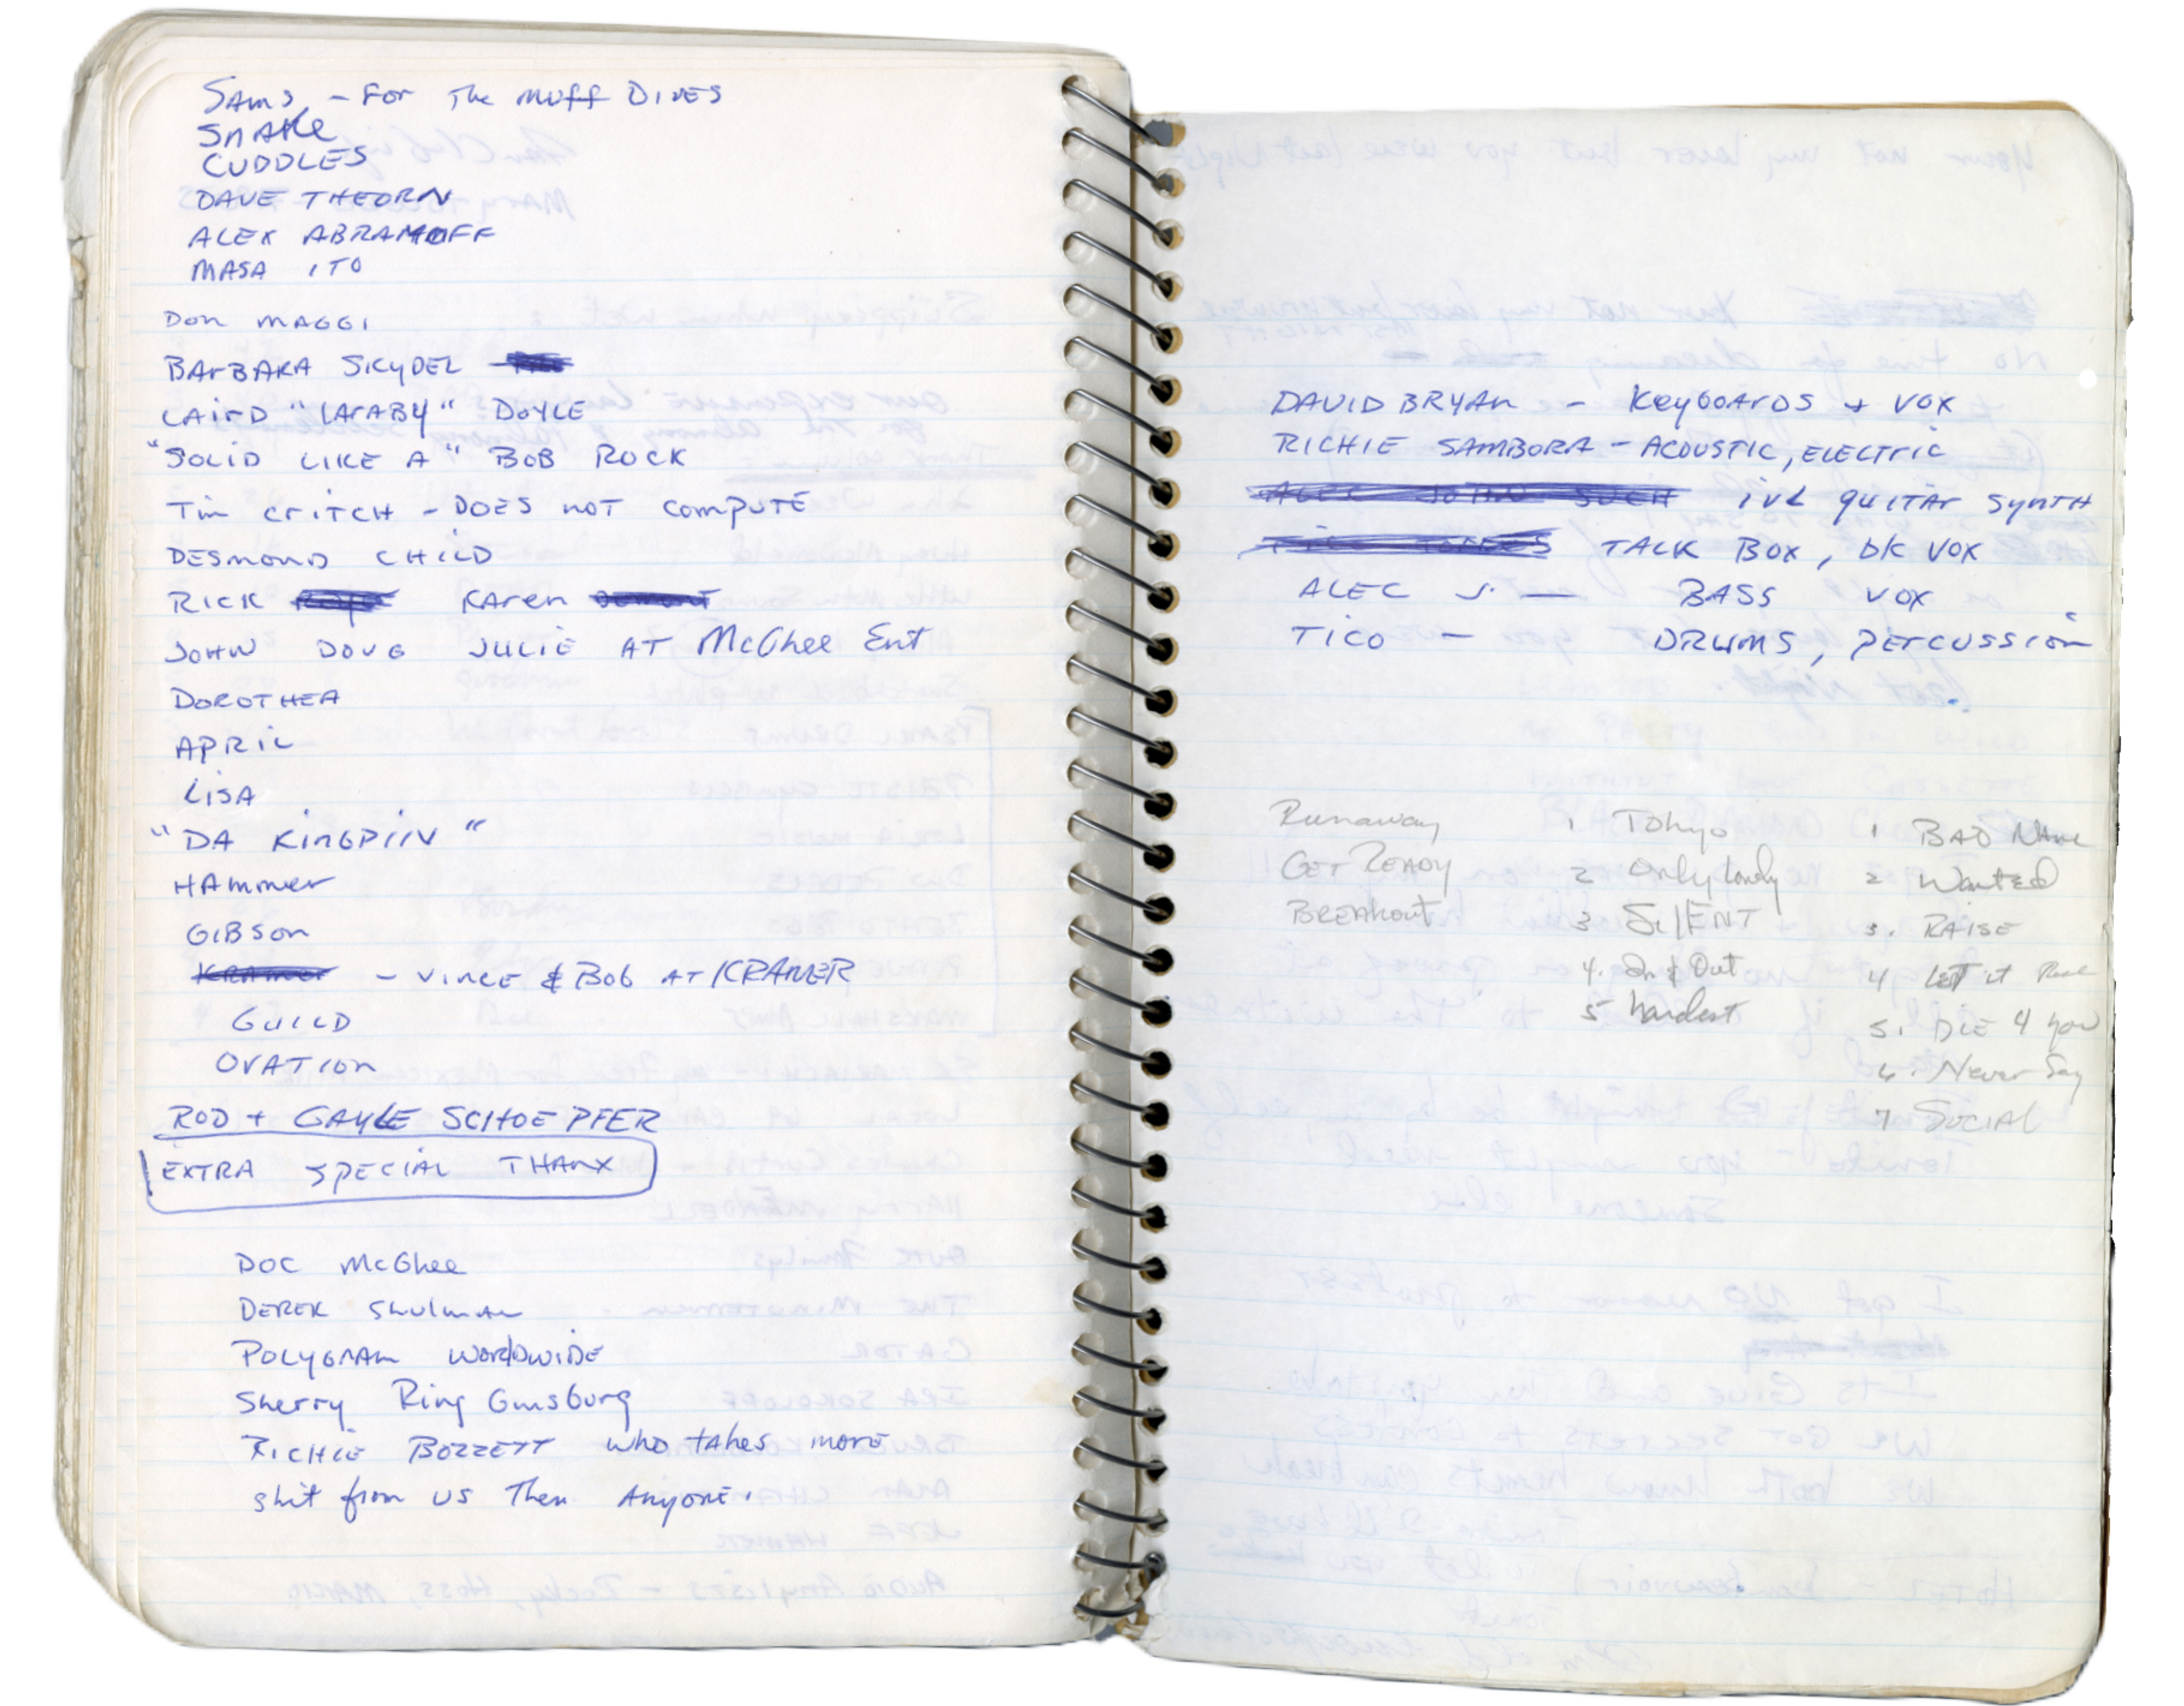 SAMS - For The MUFF DIVES
SNAKE
CUDDLES
DAVE THEORN
ALEX ABRAMOFF
MASA ITO
Don MAGGI
BArBARA SKYDEL -
LAIrD "LArABY" DOYLE
"SOLID LIKE A" BOB ROCK
Tim CritCH - DOES NOT COMPUTE
DESMOND CHILD
RICK KAren
JOHN DOUG JULIE AT McGhee Ent
DOROTHEA
APRIL
LISA
"DA KINGPIN"
HAmmer
GIBSON
KRAMER - VINCE & Bob AT KRAMER
GUILD
OVATION
ROD + GAYLE SCHOEPFER
EXTRA SPECIAL THANX
DOC McGhee
DEREK Shulman
POLYGRAM WORLDWIDE
Sherry Ring Ginsburg
RICHIE BOZZETT who takes more
shit from us Then Anyone.
DAVID BRYAN - KEYBOARDS + VOX
RICHIE SAMBORA - ACOUSTIC, ELECTRIC
ALEC JOHN SUCH guitar synth
TICO TORRES TALK BOX, bk VOX
ALEC J. - BASS VOX
TICO - DRUMS, PERCUSSION
Runaway 1 Tokyo 1 BAD NAME
GET READY 2 Only lonely 2 Wanted
BREAKOUT 3 SilENT 3. RAISE
4. In & Out 4 LET it Rock
5 hardest 5. DIE 4 you
6. Never Say
7 SOCIAL